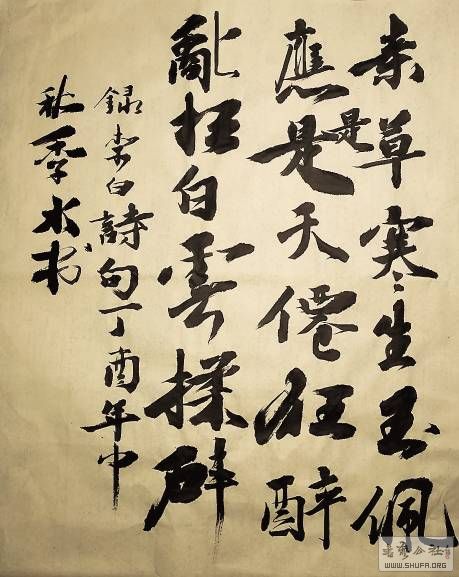 草寒生玉佩
是
應是天僊狂醉
亂狂白雲揉碎
録李白詩句丁酉年中
秋季水书
书艺公社
WWW.SHUFA.ORG